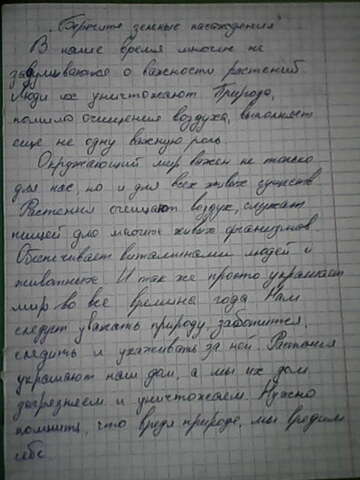 "Берегите зеленые насаждения"
В наше время многие не
задумываются о важности растений
Люди их уничтожают. Природа,
помимо очищения воздуха, выполняет
еще не одну важную роль.
Окружающий мир важен не только
для нас, но и для всех живых существ
Растения очищают воздух, служат
пищей для многих живых организмов.
Обеспечивает витаминами людей и
животных. И так же просто украшает
мир во все времена года. Нам
следует уважать природу, заботится,
следить и ухаживать за ней. Растения
украшают наш дом, а мы их дом
загрязняем и уничтожаем. Нужно
помнить, что вредя природе, мы вредим
себе.